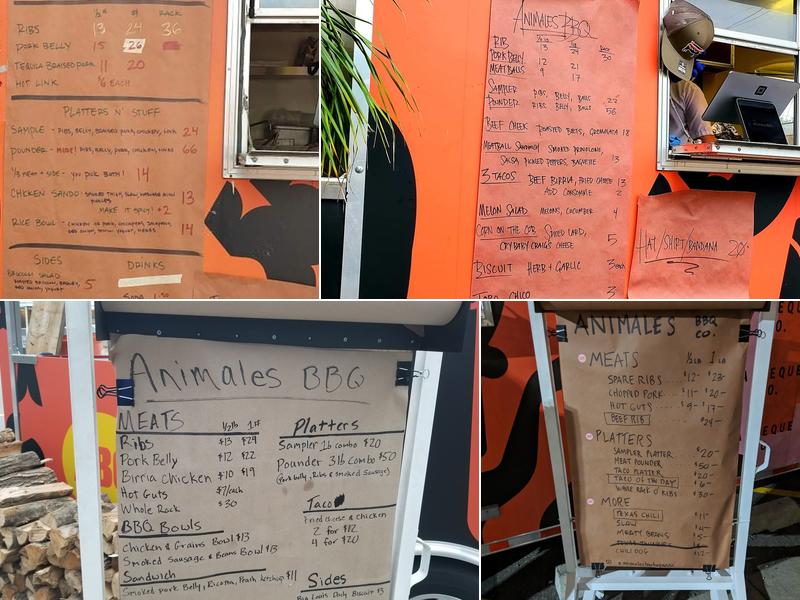 ½# # RACK
RIBS 13 24 36
PORK BELLY 15 26
TEQUILA BRAISED PORK 11 20
HOT LINK $6 EACH
PLATTERS N' STUFF
SAMPLE - RIBS, BELLY, BRAISED PORK, CHICKEN, LINK 24
POUNDER - MORE! RIBS, BELLY, PORK, CHICKEN, LINKS 66
½# MEAT + SIDE - YOU PICK BOTH! 14
CHICKEN SANDO: SMOKED THIGH, SLAW, 13
PICKLES
MAKE IT SPICY! +2
RICE BOWL - CHICKEN OR PORK, CHICKPEAS, JALAPEÑO, 14
RED ONION, YOGURT, HERBS
SIDES DRINKS
BROCCOLI SALAD 5
ROASTED BROCCOLI,
RED ONION, YOGURT
SODA 1.50
ANIMALES BBQ
RIB 13 30
PORK BELLY 12 21
MEATBALLS 9 17
SAMPLER RIBS, BELLY, BALLS 22
POUNDER RIBS, BELLY, BALLS 56
BEEF CHEEK ROASTED BEETS, GREMOLATA 18
MEATBALL SANDWICH SMOKED PROVOLONE,
SALSA, PICKLED PEPPERS, BAGUETTE 13
3 TACOS BEEF BIRRIA, FRIED CHEESE 13
ADD CONSOMME 2
MELON SALAD MELONS, CUCUMBER 4
CORN ON THE COB SPICED LARD,
CRYBABY CRAIG'S CHEESE 5
BISCUIT HERB + GARLIC 3 each
TOPO CHICO 3
HAT/SHIRT/BANDANA 20
Animales BBQ
MEATS ½lb 1#
Ribs $13 $24
Pork Belly $12 $22
Birria Chicken $10 $19
Hot Guts $7/each
Whole Rack $30
BBQ Bowls
Chicken & Grains Bowl $13
Smoked Sausage & Beans Bowl $13
Sandwich
Smoked pork Belly, Ricotta, Peach ketchup $11
Platters
Sampler 1lb combo $20
Pounder 3lb combo $50
(Pork belly, Ribs & Smoked Sausage)
Taco
Fried cheese & chicken
2 for $12
4 for $20
Sides
Biscuit $3
ANIMALES BBQ CO.
MEATS ½LB 1LB
SPARE RIBS $12 $23
CHOPPED PORK $11 $20
HOT GUTS $9 $17
BEEF RIB $24
PLATTERS
SAMPLER PLATTER $20
MEAT POUNDER $50
TACO PLATTER $20
TACO OF THE DAY $6
WHOLE RACK O' RIBS $30
MORE
TEXAS CHILI $11
SLAW $4
MEATY BEANS $5
CHILI DOG $12